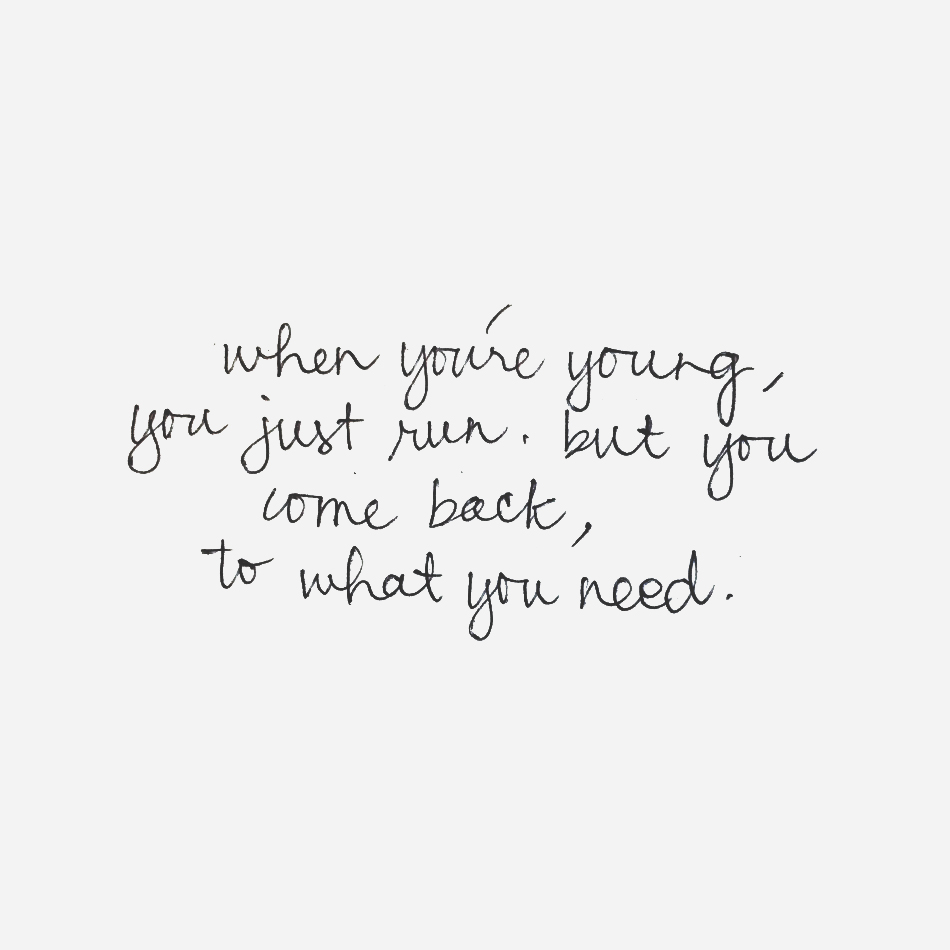 when you're young,
you just run. but you
come back,
to what you need.